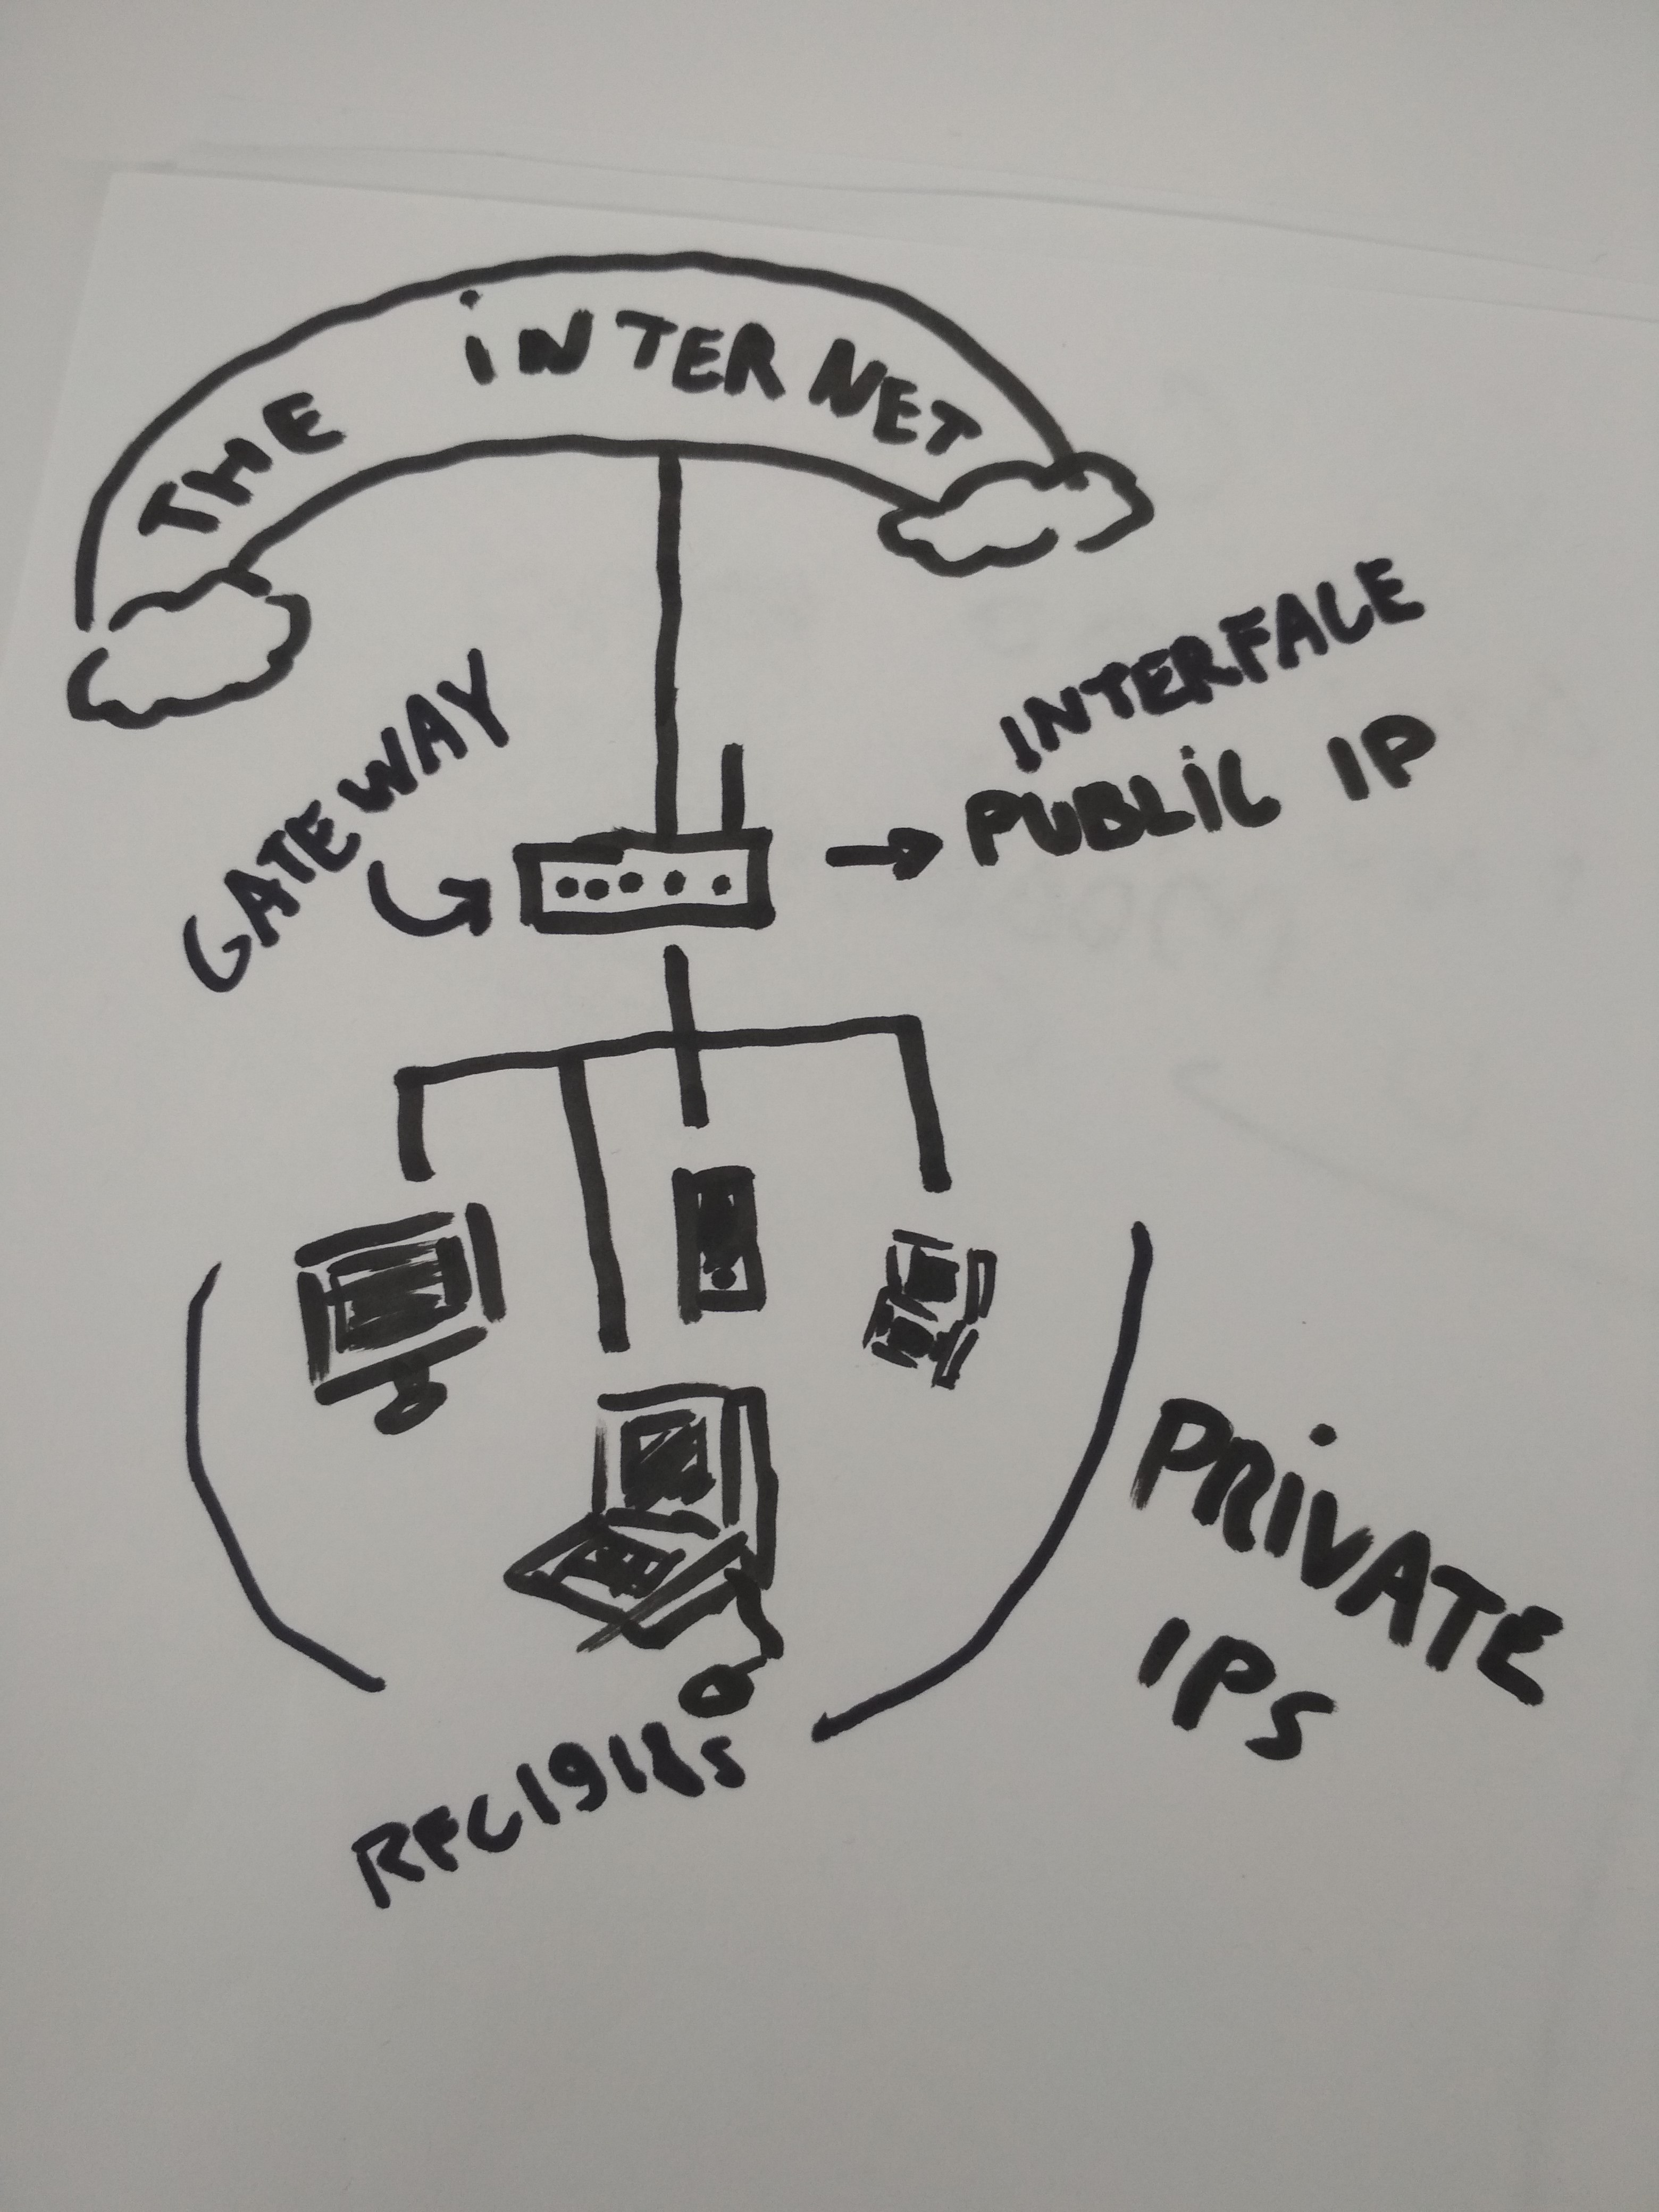 THE iNTERNET
GATEWAY
INTERFACE
PUBLiC IP
PRiVATE
IPS
RFC1918s